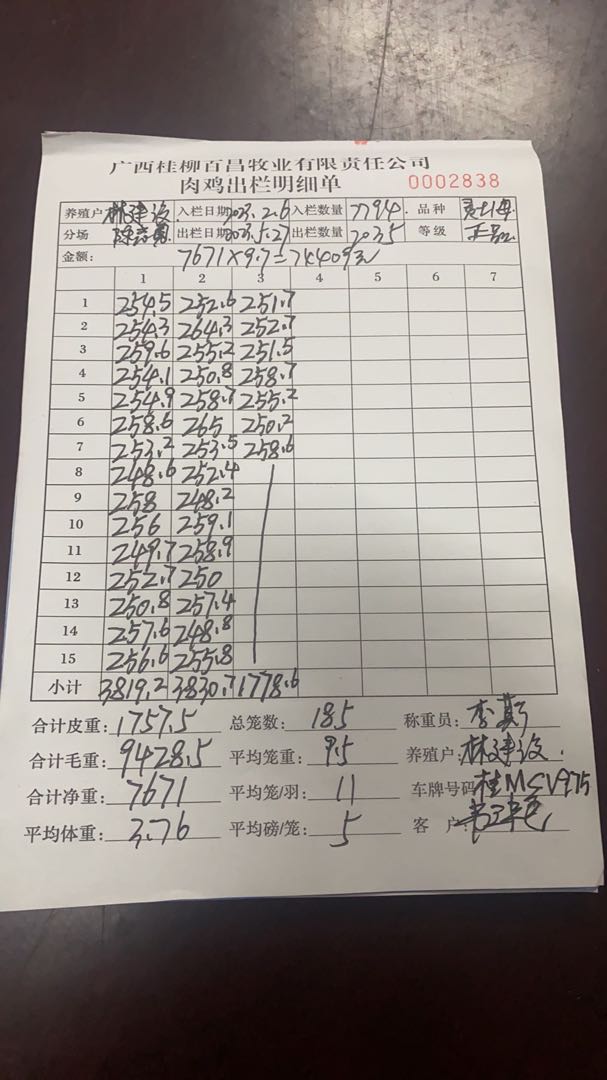 广西桂柳百昌牧业有限责任公司
肉鸡出栏明细单 0002838
养殖户 林建设 入栏日期 2023.2.6 入栏数量 7794. 品种
分场 出栏日期 2023.5.27 出栏数量 2035 等级 正品
金额: 7671×9.7=74409元
1 2 3 4 5 6 7
1 254.5 252.6 251.7
2 254.3 264.3 252.7
3 259.6 255.2 251.5
4 254.1 250.8 258.7
5 254.9 258.7 255.2
6 258.6 265 250.2
7 253.2 253.5 258.6
8 248.6 252.4
9 258 248.2
10 256 259.1
11 249.7 258.9
12 252.7 250
13 250.8 257.4
14 257.6 248.8
15 256.6 255.8
小计 3819.2 3830.7 1778.6
合计皮重: 1757.5 总笼数: 185 称重员:
合计毛重: 9428.5 平均笼重: 9.5 养殖户: 林建设.
合计净重: 7671 平均笼/羽: 11 车牌号码 桂MSV975
平均体重: 3.76 平均磅/笼: 5 客户: